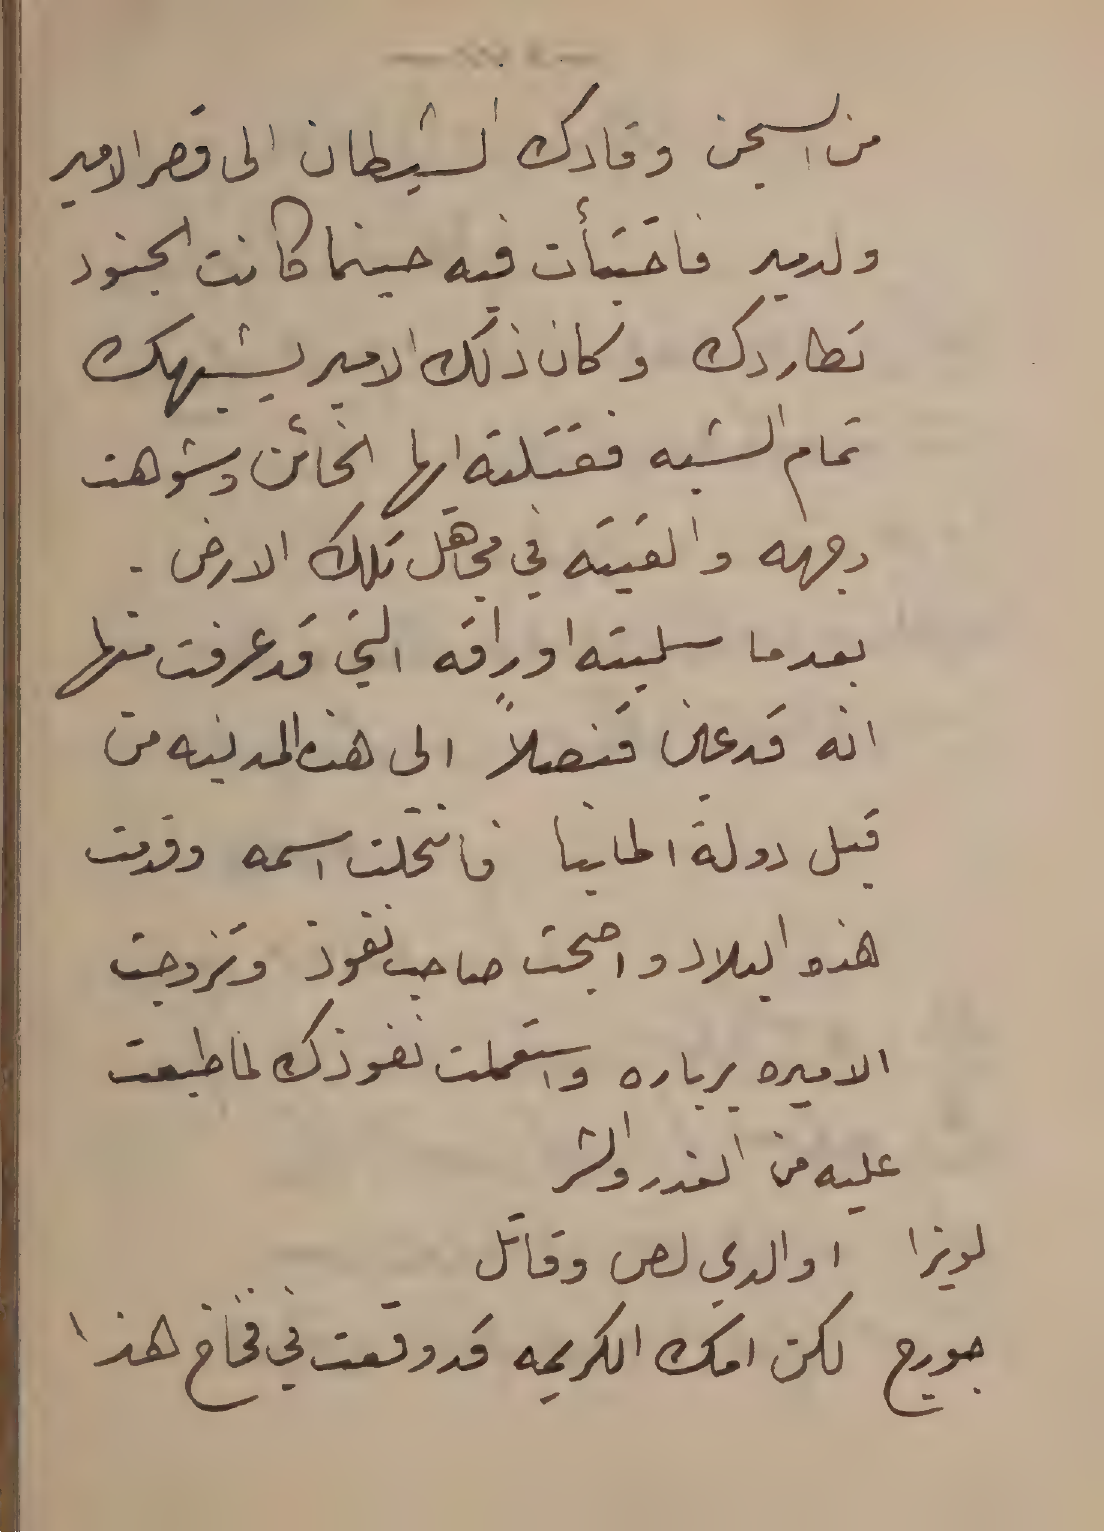 من السجن وقادك الشيطان الى قصر الامير
ولدمير فاختبأت فيه حينما كانت الجنود
تطاردك وكان ذلك الامير يشبهك
تمام الشبه فقتلته ايها الخائن وشوهت
وجهه والقيته في مجاهل تلك الارض .
بعدما سلبته اوراقه التي قد عرفت منها
انه قد عين قنصلاً الى هذه المدينه من
قبل دولة المانيا فانتحلت اسمه وقدمت
هذه البلاد واصبحت صاحب نفوذ وتزوجت
الاميره برباره واستعملت نفوذك لما طبعت
عليه من الغدر والشر
لويزا اوالدي لص وقاتل
جورج لكن امك الكريمه قد وقعت في فخاخ هذا